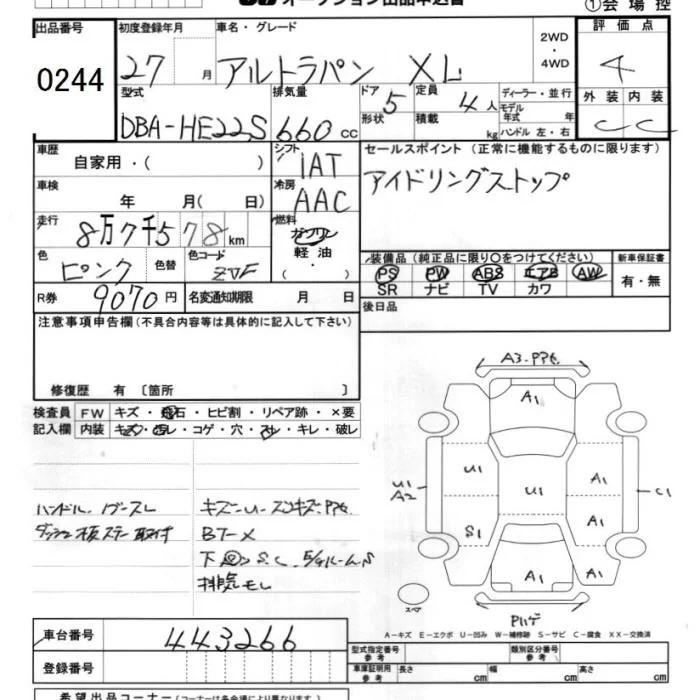 オークション出品申込書
①会場控
出品番号 初度登録年月 車名・グレード 評価点
0244 27 月 アルトラパン XL 2WD・4WD 4
型式 排気量 ドア 定員 ディーラー・並行 外装 内装
DBA-HE22S 660 cc 5 4人 モデル年式 年 C C
形状 積載 kg ハンドル 左・右
車歴 シフト セールスポイント (正常に機能するものに限ります)
自家用・( ) IAT アイドリングストップ
車検 年 月( 日) 冷房 AAC
走行 8万7千578km 燃料 ガソリン
軽油
( ・ )
色 ピンク 色替 色コード ZVF
装備品 (純正品に限り〇をつけてください) 新車保証書
PS PW ABS エアB AW 有・無
SR ナビ TV カワ
R券 9070円 名変通知期限 月 日
後日品
注意事項申告欄(不具合内容等は具体的に記入して下さい)
修復歴 有 〔箇所 〕
検査員 FW キズ・飛石・ヒビ割・リペア跡・×要
記入欄 内装 キズ・汚レ・コゲ・穴・スレ・キレ・破レ
ハンドル
取付
Bワーメ
排気モレ
A3.
A1
U1 A2
U1
U1
A1
C1
S1
A1
A1
A1
スペア
Pハゲ
A-キズ E-エクボ U-凹み W-補修跡 S-サビ C-腐食 XX-交換済
車台番号 443266
登録番号
型式指定番号 参考 類別区分番号 参考
車庫証明用 参考 長さ cm 幅 cm 高さ cm
希望出品コーナー